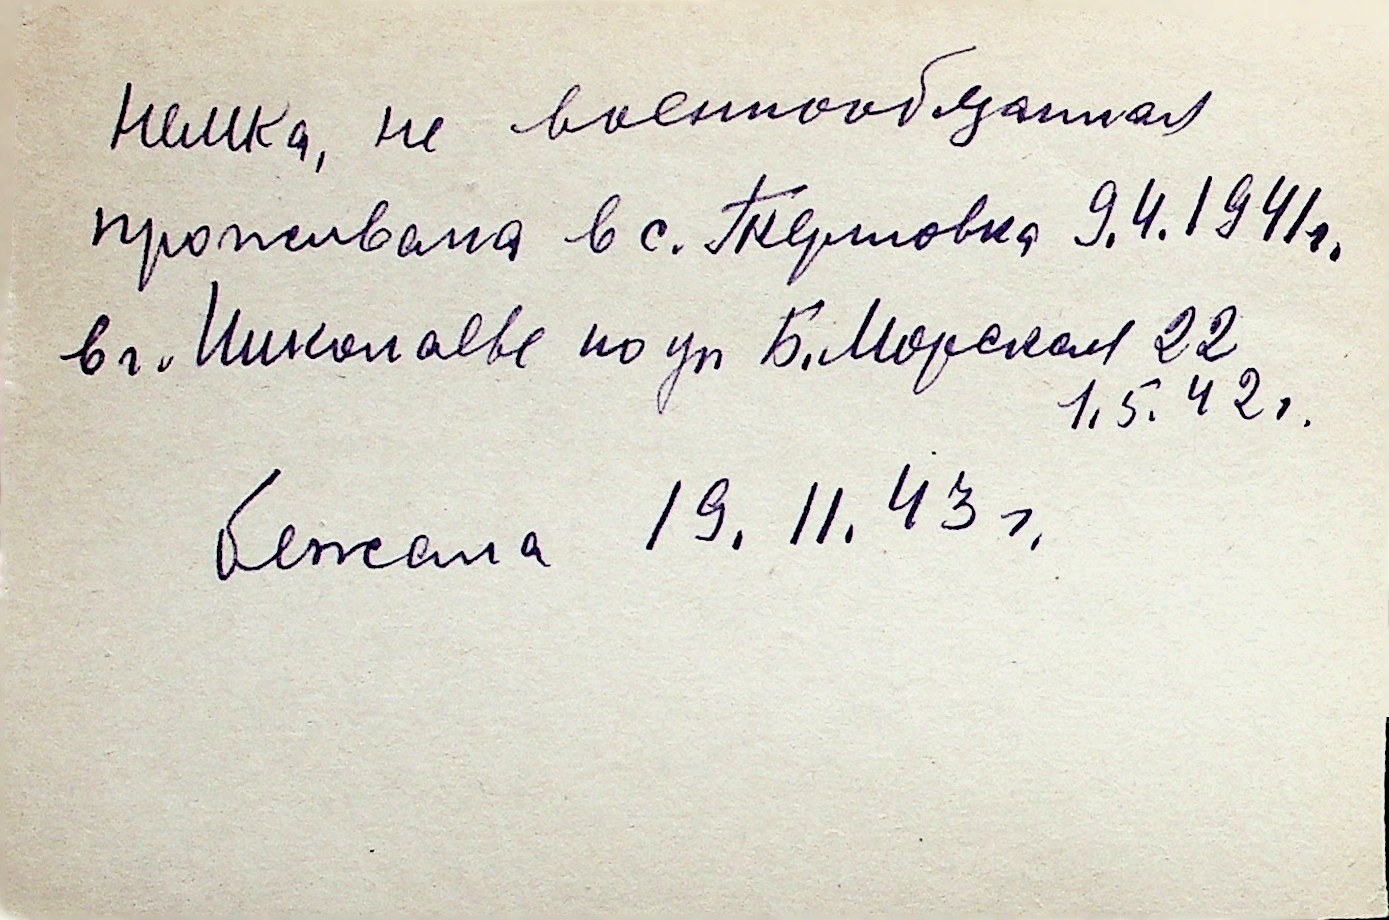 Немка, не военнообязанная
проживала в с. Терновка 9.4.1941г.
в г. Николаеве по ул Б. Морская 22
1.5.42г.
бежала 19.11.43 г.